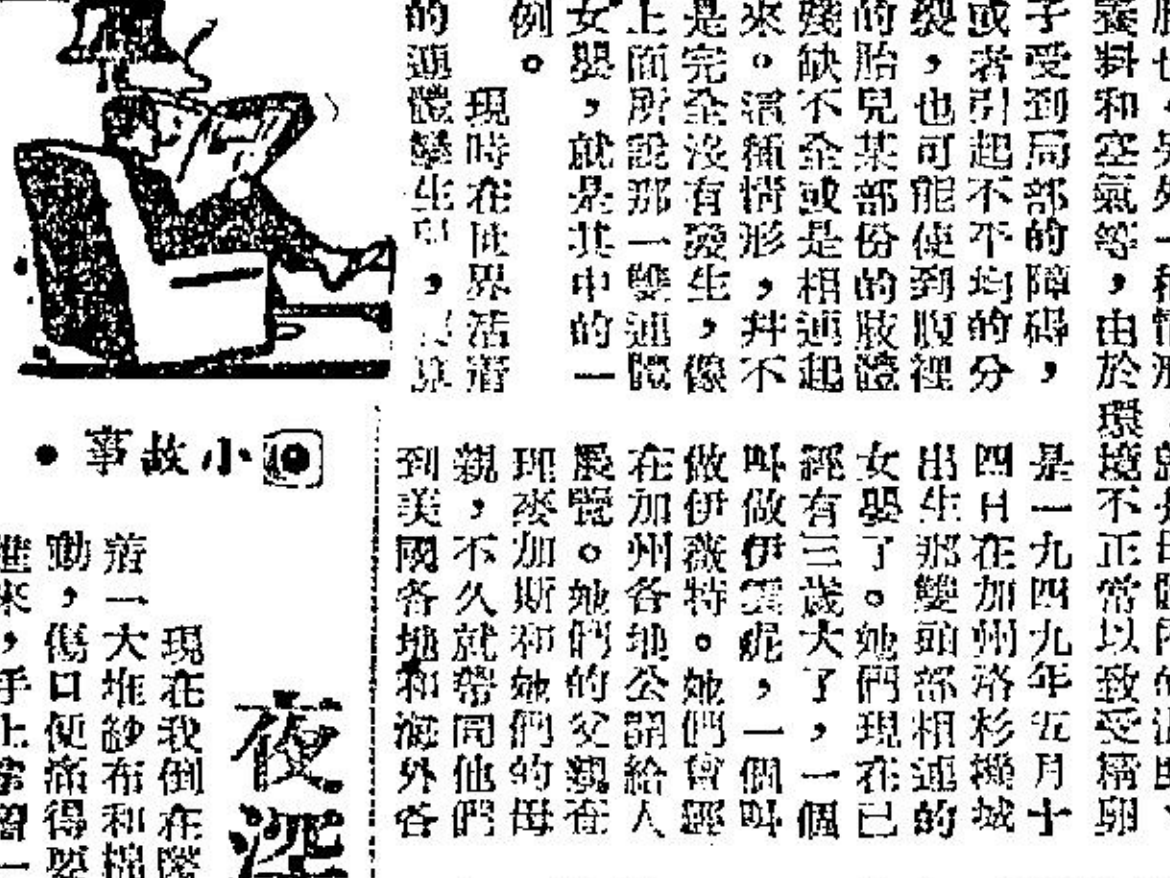 養料和空氣等，由於環境不正常以致受精卵
子受到局部的障碍，
或者引起不平均的分
裂，也可能使到腹裡
的胎兒某部份的肢體
殘缺不全或是相連起
來。這種情形，並不
是完全沒有發生，像
上面所說那一雙連體
女嬰，就是其中的一
例。
現時在世界活着
的連體孿生
是一九四九年五月十
四日在加州洛杉磯城
出生那雙頭部相連的
女嬰了。她們現在已
經有三歲大了，一個
叫做伊 呢，一個叫
做伊薇特。她們曾經
在加州各地公開給人
展覽。她們的父親在
加斯和她們的母
親，不久就帶同他們
到美國各地和海外各
小故事•
夜深
現在我倒在
着一大堆紗布和棉
動，傷口便痛得要
進來，手上